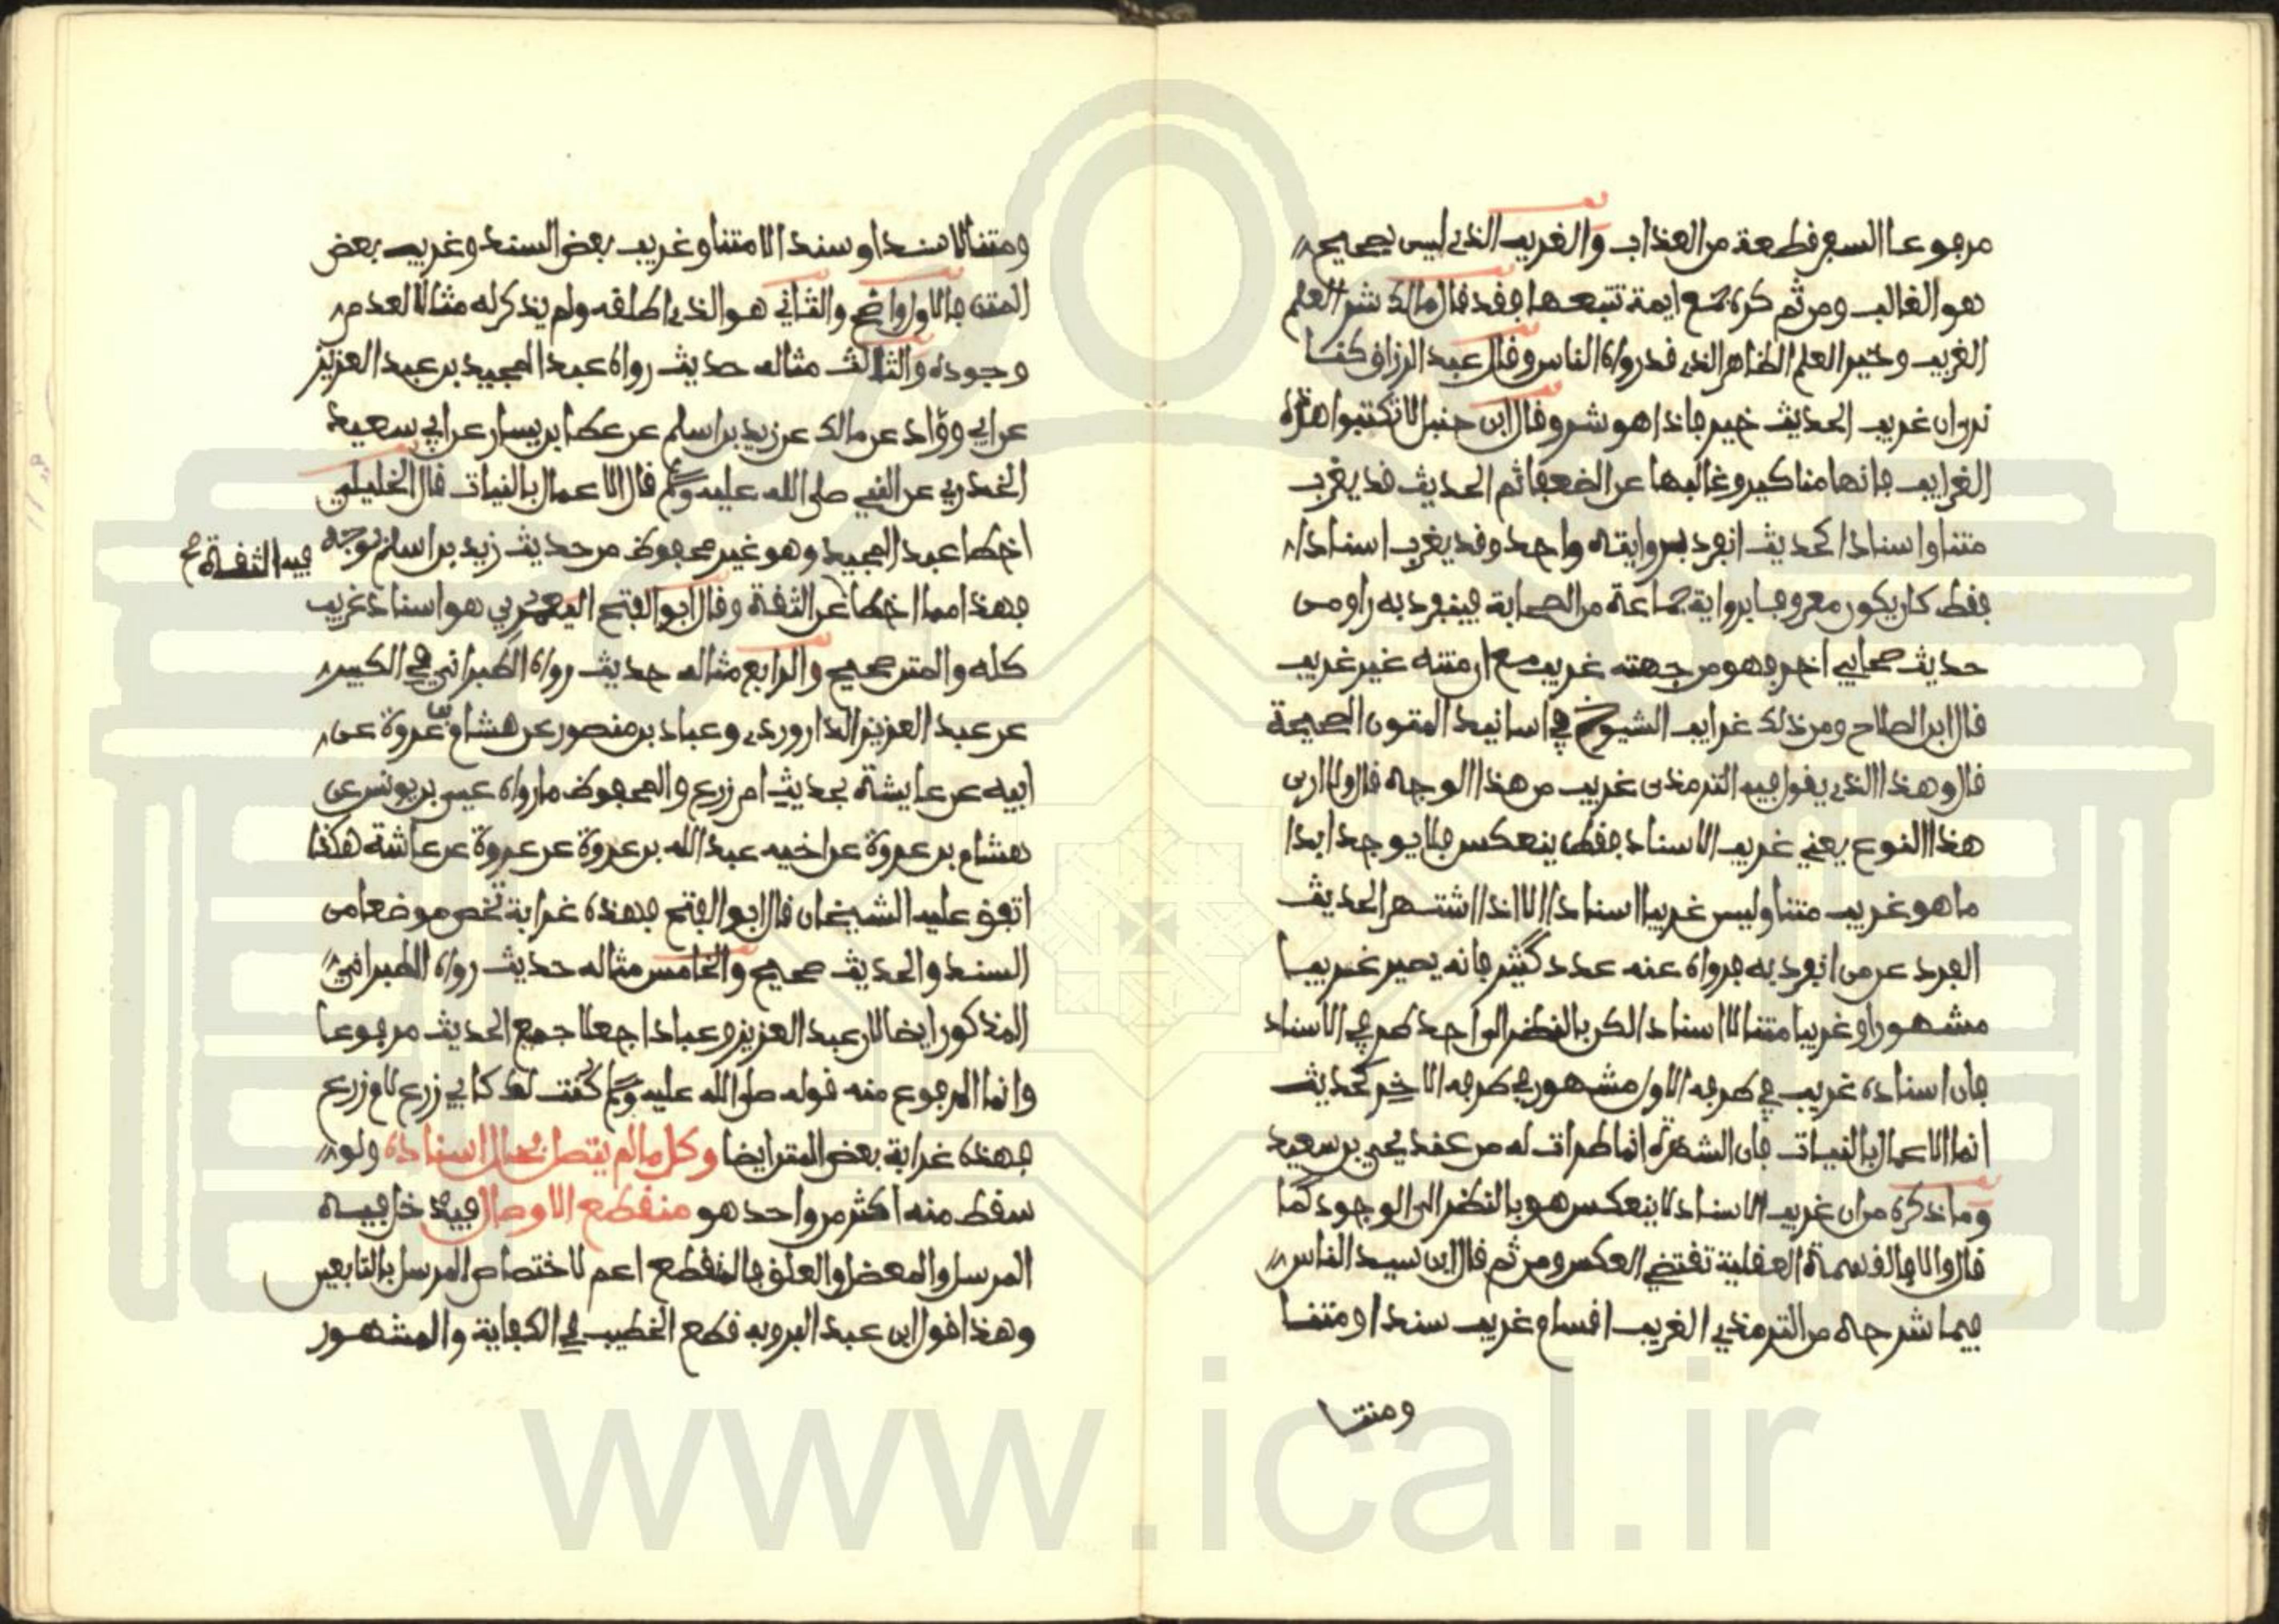 مرفوعا السفر قطعة من العذاب والغريب الذي ليس بصحيح
هو الغالب ومن ثم كره جمع ايمة تتبعها فقد قال مالك شر العلم
الغريب وخير العلم الظاهر الذي قد رواه الناس وقال عبد الرزاق كنا
نرى ان غريب الحديث خير فاذا هو شر وقال ابن حنبل لا تكتبوا هذه
الغرايب فانها مناكير وغالبها عن الضعفا ثم الحديث قد يغرب
متنا واسنادا كحديث انفرد بروايته واحد وقد يغرب اسنادا
فقط كان يكون معروفا برواية جماعة من الصحابة فينفرد به راو من
حديث صحابي اخر فهو من جهته غريب مع ان متنه غير غريب
قال ابن الصلاح ومن ذلك غرايب الشيوخ في اسانيد المتون الصحيحة
قال وهذا الذي يقول فيه الترمذي غريب من هذا الوجه قال ولا ارى
هذا النوع يعني غريب الاسناد فقط ينعكس فلا يوجد ابدا
ما هو غريب متنا وليس غريبا اسنادا الا اذا اشتهر الحديث
الفرد عن من انفرد به فرواه عنه عدد كثير فانه يصير غريبا
مشهورا وغريبا متنا لا اسنادا لكن بالنظر الى احد طرفي الاسناد
فان اسناده غريب في طرفه الاول مشهور في طرفه الاخر كحديث
انما الاعمال بالنيات فان الشهرة انما طرات له من عند يحيى بن سعيد
وما ذكره من ان غريب الاسناد لا ينعكس هو بالنظر الى الوجود كما
قال والا فالقسمة العقلية تقتضي العكس ومن ثم قال ابن سيد الناس
فيما شرحه من الترمذي الغريب اقسام غريب سندا ومتنا
ومتنا
ومتنا لا سندا وسندا لا متنا وغريب بعض السند وغريب بعض
المتن فالاول واضح والثاني هو الذي اطلقه ولم يذكر له مثالا لعدم
وجوده والثالث مثاله حديث رواه عبد المجيد بن عبد العزيز
عن ابي رواد عن مالك عن زيد بن اسلم عن عطا بن يسار عن ابي سعيد
الخدري عن النبي صلى الله عليه وسلم قال الاعمال بالنيات قال الخليلي
اخطا عبد المجيد وهو غير محفوظ من حديث زيد بن اسلم بوجه
فيه الثقة صح
فهذا مما اخطا عن الثقة وقال ابو الفتح اليعمري هو اسناد غريب
كله والمتن صحيح والرابع مثاله حديث رواه الطبراني في الكبير
عن عبد العزيز الداروردي وعباد بن منصور عن هشام بن عروة عن
ابيه عن عايشة بحديث ام زرع والمحفوظ ما رواه عيسى بن يونس عن
هشام بن عروة عن اخيه عبد الله بن عروة عن عروة عن عائشة هكذا
اتفق عليه الشيخان قال ابو الفتح فهذه غرابة تخص موضعا من
السند والحديث صحيح والخامس مثاله حديث رواه الطبراني
المذكور ايضا لان عبد العزيز وعبادا جعلا جميع الحديث مرفوعا
وانما المرفوع منه قوله صلى الله عليه وسلم كنت لك كابي زرع لام زرع
فهذه غرابة بعض المتن ايضا وكل ما لم يتصل بحال اسناده ولو
سقط منه اكثر من واحد هو منقطع الاوصال فيدخل فيه
المرسل والمعضل والمعلق فالمنقطع اعم لاختصاص المرسل بالتابعين
وهذا قول ابن عبد البر وبه قطع الخطيب في الكفاية والمشهور
www.ical.ir